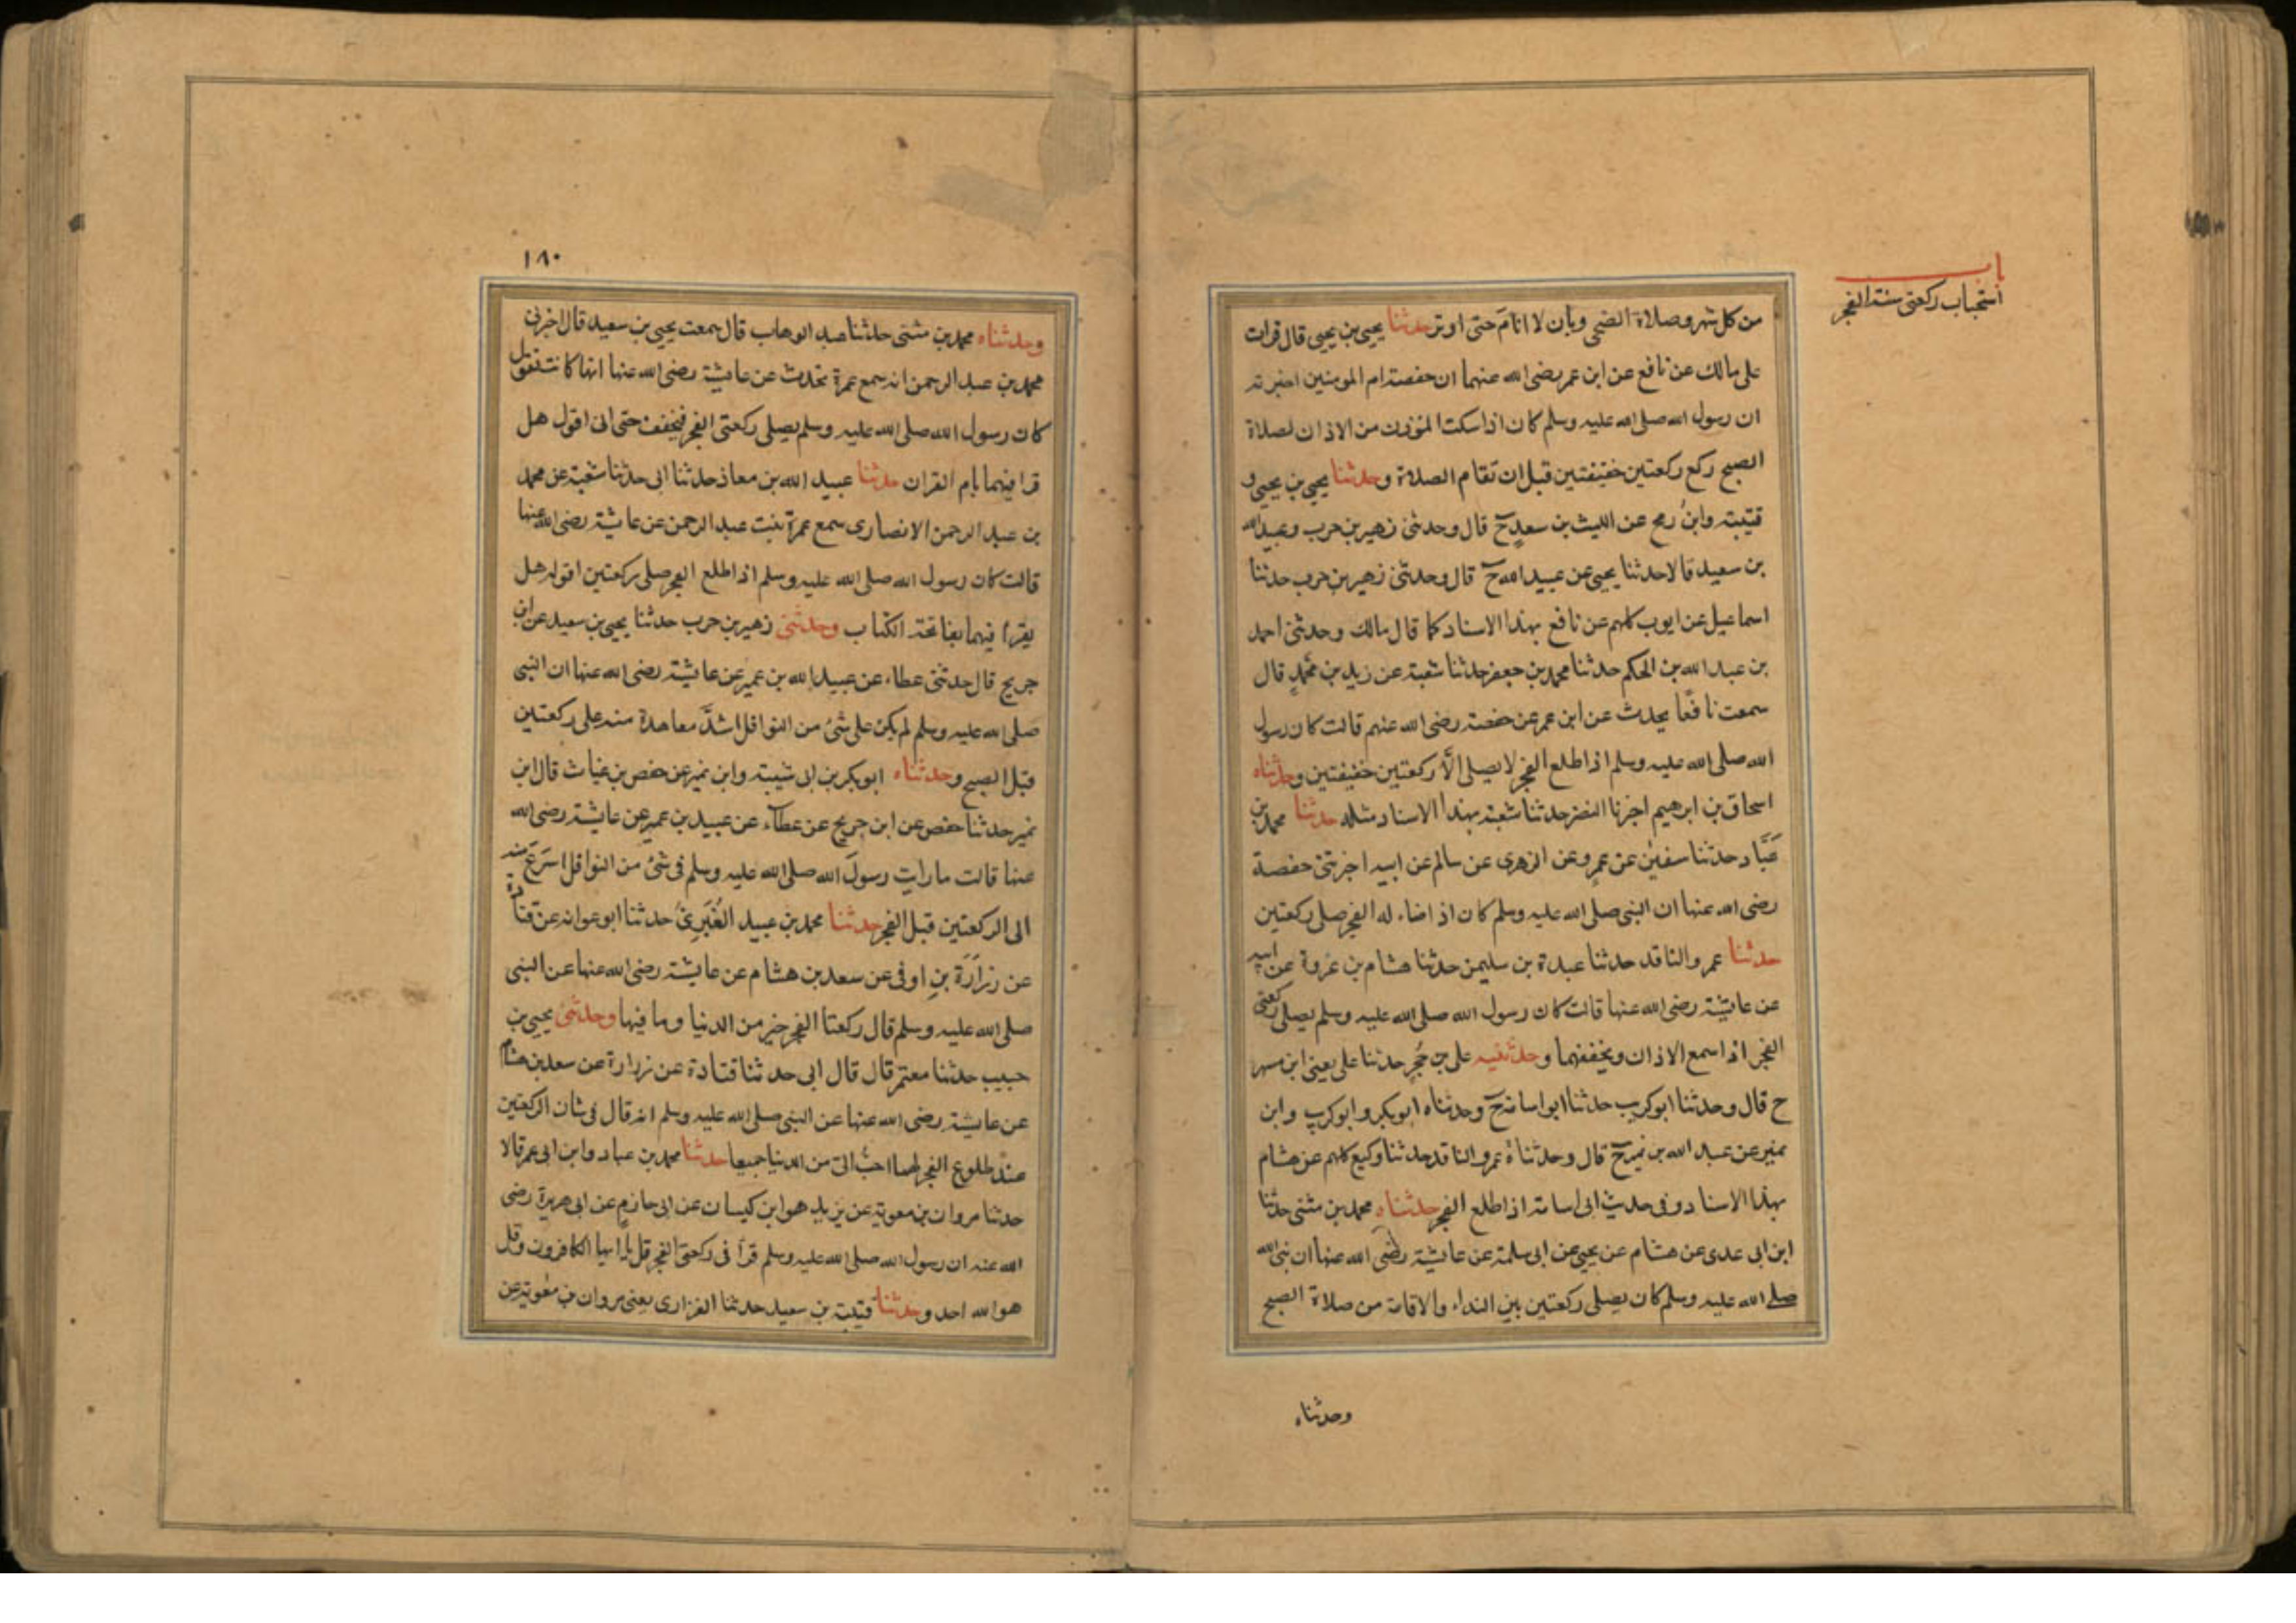 باب
استحباب ركعتى سنة الفجر
من كل شهر وصلاة الضحى وبان لا انام حتى اوتر حدثنا يحيى بن يحيى قال قرات
على مالك عن نافع عن ابن عمر رضى الله عنهما ان حفصة ام المومنين اخبرته
ان رسول الله صلى الله عليه وسلم كان اذا سكت المؤذن من الاذان لصلاة
الصبح ركع ركعتين خفيفتين قبل ان تقام الصلاة وحدثنا يحيى بن يحيى و
قتيبة وابن رمح عن الليث بن سعد ح قال وحدثنى زهير بن حرب وعبيد الله
بن سعيد قالا حدثنا يحيى عن عبيد الله ح قال وحدثنى زهير بن حرب حدثنا
اسماعيل عن ايوب كلهم عن نافع بهذا الاسناد كما قال مالك وحدثنى احمد
بن عبد الله بن الحكم حدثنا محمد بن جعفر حدثنا شعبة عن زيد بن محمد قال
سمعت نافعا يحدث عن ابن عمر عن حفصة رضى الله عنهم قالت كان رسول
الله صلى الله عليه وسلم اذا طلع الفجر لا يصلى الا ركعتين خفيفتين وحدثناه
اسحاق بن ابرهيم اخبرنا النضر حدثنا شعبة بهذا الاسناد مثله حدثنا محمد بن
عباد حدثنا سفين عن عمرو عن الزهرى عن سالم عن ابيه اخبرتنى حفصة
رضى الله عنها ان النبى صلى الله عليه وسلم كان اذا اضاء له الفجر صلى ركعتين
حدثنا عمرو الناقد حدثنا عبدة بن سليمن حدثنا هشام بن عروة عن ابيه
عن عايشة رضى الله عنها قالت كان رسول الله صلى الله عليه وسلم يصلى ركعتى
الفجر اذا سمع الاذان ويخففهما وحدثنيه على بن حجر حدثنا على يعنى ابن مسهر
ح قال وحدثنا ابو كريب حدثنا ابو اسامة ح وحدثناه ابو بكر وابو كريب وابن
نمير عن عبد الله بن نمير ح قال وحدثناه عمرو الناقد حدثنا وكيع كلهم عن هشام
بهذا الاسناد وفى حديث ابى اسامة اذا طلع الفجر حدثناه محمد بن مثنى حدثنا
ابن ابى عدى عن هشام عن يحيى عن ابى سلمة عن عايشة رضى الله عنها ان نبى الله
صلى الله عليه وسلم كان يصلى ركعتين بين النداء والاقامة من صلاة الصبح
وحدثناه
١٨٠
وحدثناه محمد بن مثنى حدثنا عبد الوهاب قال سمعت يحيى بن سعيد قال اخبرنى
محمد بن عبد الرحمن انه سمع عمرة تحدث عن عايشة رضى الله عنها انها كانت تقول
كان رسول الله صلى الله عليه وسلم يصلى ركعتى الفجر فيخفف حتى انى اقول هل
قرا فيهما بام القران حدثنا عبيد الله بن معاذ حدثنا ابى حدثنا شعبة عن محمد
بن عبد الرحمن الانصارى سمع عمرة بنت عبد الرحمن عن عايشة رضى الله عنها
قالت كان رسول الله صلى الله عليه وسلم اذا طلع الفجر صلى ركعتين اقول هل
يقرا فيهما بفاتحة الكتاب وحدثنى زهير بن حرب حدثنا يحيى بن سعيد عن ابن
جريج قال حدثنى عطاء عن عبيد الله بن عمير عن عايشة رضى الله عنها ان النبى
صلى الله عليه وسلم لم يكن على شئ من النوافل اشد معاهدة منه على ركعتين
قبل الصبح وحدثناه ابو بكر بن ابى شيبة وابن نمير عن حفص بن غياث قال ابن
نمير حدثنا حفص عن ابن جريج عن عطاء عن عبيد بن عمير عن عايشة رضى الله
عنها قالت ما رايت رسول الله صلى الله عليه وسلم فى شئ من النوافل اسرع منه
الى الركعتين قبل الفجر حدثنا محمد بن عبيد الغبرى حدثنا ابو عوانه عن قتادة
عن زرارة بن اوفى عن سعد بن هشام عن عايشة رضى الله عنها عن النبى
صلى الله عليه وسلم قال ركعتا الفجر خير من الدنيا وما فيها وحدثنى يحيى بن
حبيب حدثنا معتمر قال قال ابى حدثنا قتادة عن زرارة عن سعد بن هشام
عن عايشة رضى الله عنها عن النبى صلى الله عليه وسلم انه قال فى شان الركعتين
عند طلوع الفجر لهما احب الى من الدنيا جميعا حدثنا محمد بن عباد وابن ابى عمر قالا
حدثنا مروان بن معوية عن يزيد هو ابن كيسان عن ابى حازم عن ابى هريرة رضى
الله عنه ان رسول الله صلى الله عليه وسلم قرأ فى ركعتى الفجر قل يا ايها الكافرون وقل
هو الله احد وحدثنا قتيبة بن سعيد حدثنا الفزارى يعنى مروان بن معوية عن